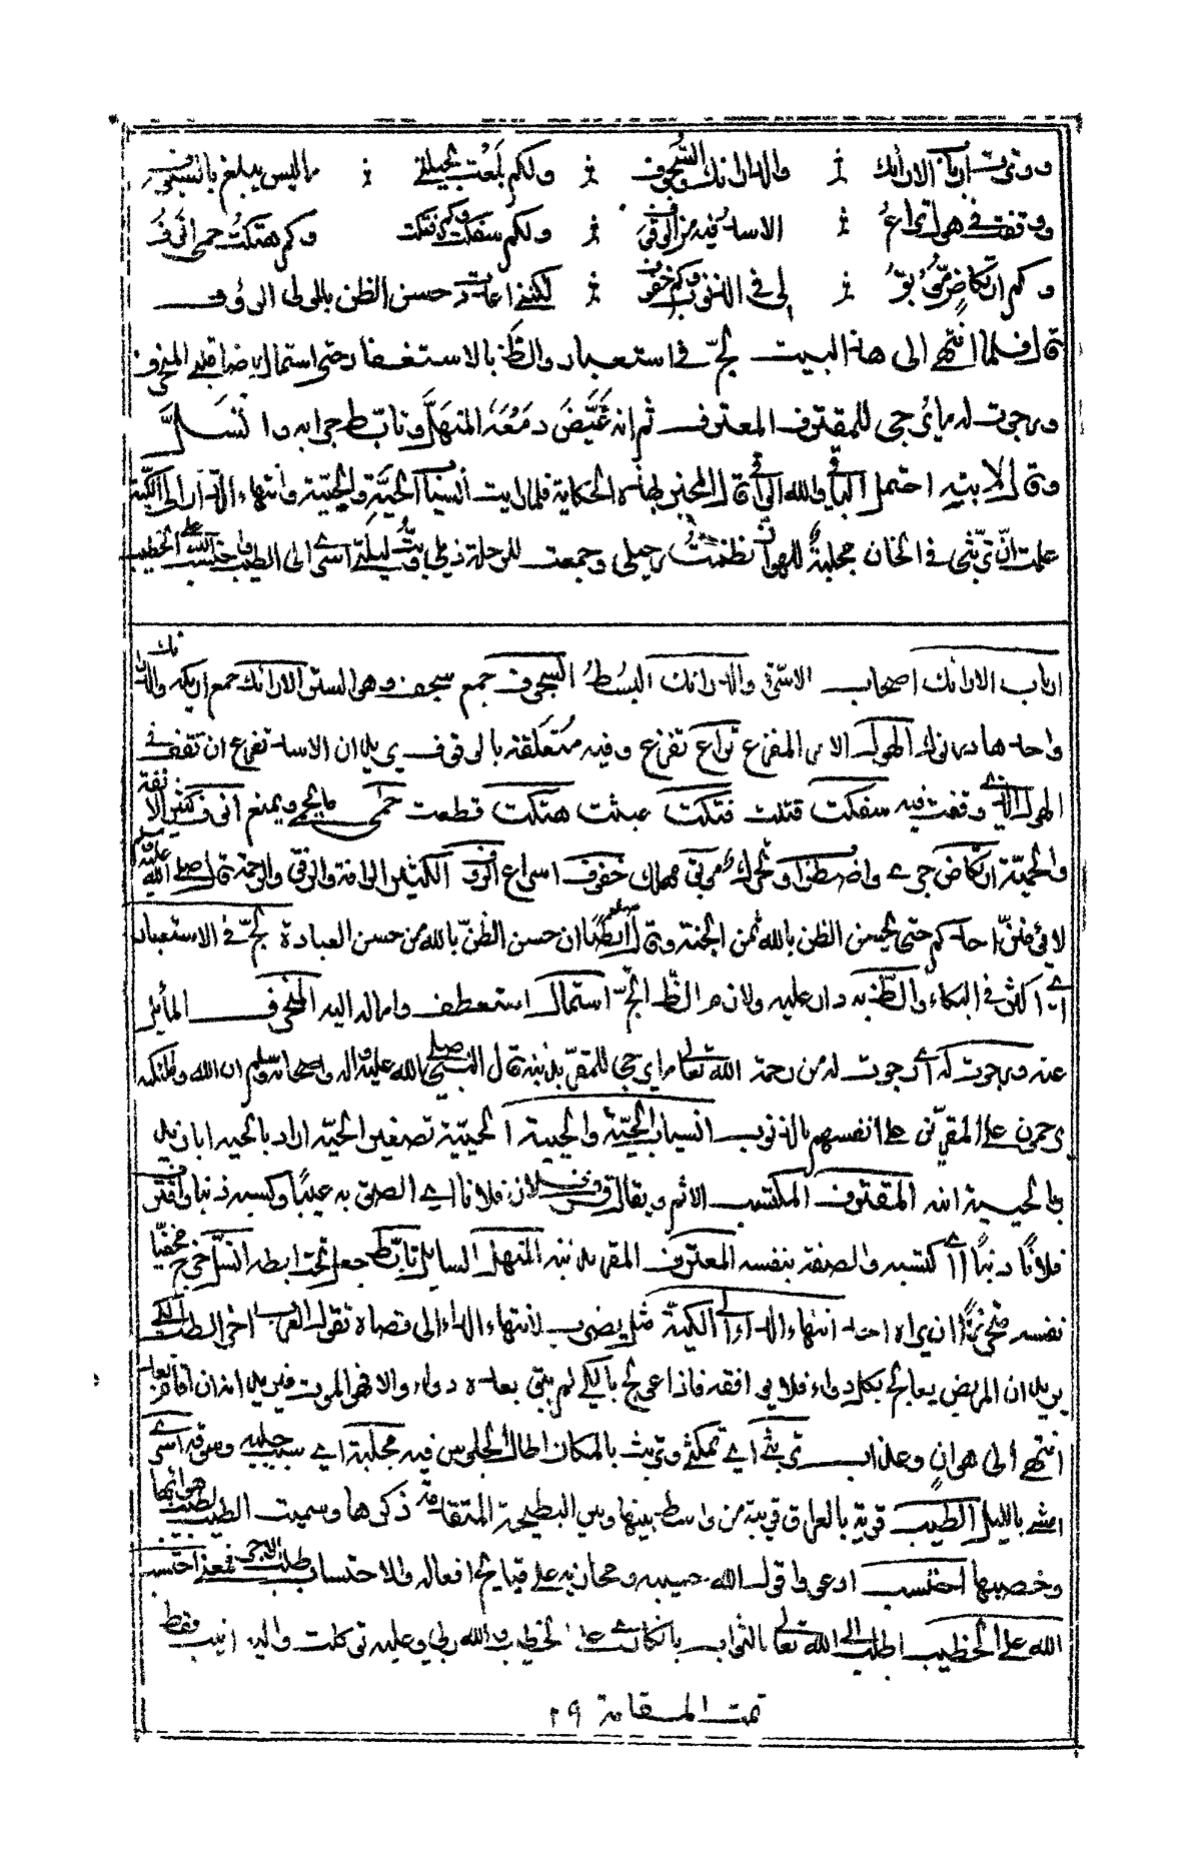 ووترت ارباب الارائك والدرانك والسجوف ولكم بلغت بحيلتي ما ليس يبلغ بالسيوف
ووقفت في هول تراع الاسد فيه من الوقوف ولكم سفكت وكم فتكت وكم هتكت حمى انوف
وكم ارتكاض موبق لي في الذنوب وكم خفوف لكنني اعددت حسن الظن بالمولى الرؤوف
قال فلما انتهى الى هذا البيت لجّ في استعبار والظّ بالاستغفار حتى استمال رضا قلبي المنحرف
ورجوت له ما يرجى للمقترف المعترف ثم إنه غَيَّضَ دمعَه المنهلّ وتأبّط جرابه وانسلّ
وقال لابنه احتمل الباقي والله الواقي قال المخبر بهذه الحكاية فلما رايت انسياب الحيّة والحييّة وانتهاء الداء الى الكيّة
علمت انّ تربّثي في الخان مجلبة للهوان فضممت رحيلي وجمعت للرحلة ذيلي وبتّ ليلتي اسري الى الطيب واحتسب الله على الخطيب
ارباب الارائك اصحاب الاسرّة والدرانك البسط السجوف جمع سجف وهو الستر الارائك جمع اريكة والدرانك
واحدها درنوك الهول الامر المفزع تراع تفزع وفيه متعلقة بالوقوف يريد ان الاسد تفزع ان تقف في
الهول الذي وقفت فيه سفكت قتلت فتكت عبثت هتكت قطعت حمى ما يحمي ويمنع انوف كثير الانفة
والحميّة ارتكاض جري واضطراب وتحرك موبق مهلك خفوف اسراع الرؤوف الكثير الرافة والرفق والرحمة قال صلى الله عليه وسلم
لا يموتنّ احدكم حتى يحسن الظن بالله ثمن الجنة وقال ايضًا ان حسن الظنّ بالله من حسن العبادة لجّ في الاستعبار
اي اكثر في البكاء والظّ به دار عليه ولازم الظّ الجّ استمال استعطف وامال اليه المنحرف المائل
عنه ورجوت له اي رجوت له من رحمة الله تعالى ما يرجى للمقر بذنبه قال النبي صلى الله عليه واله واصحابه وسلم ان الله وملائكته
يرحمون على المقرّين على انفسهم بالذنوب انسياب الحيّة والحييّة الحييّة تصغير الحيّة اراد بالحية ابا زيد
وبالحيية ابنه المقترف المكتسب الاثم ويقال قرف فلان فلانا اي الصق به عيبًا وكسبه ذنبا واقترف
فلانًا ذنبًا اي اكتسبه والصقه بنفسه المعترف المقر بذنبه المنهل السايل تابّط جعل تحت ابطه انسلّ خرج مخفيًا
نفسه متحرزًا ان يراه احد انتهاء الداء الى الكيّة مثل يضرب لانتهاء الداء الى اقصاه تقول العرب اخر الطب الكي
يريد ان المريض يعالج بكل دواء فلا يوافقه فاذا عولج بالكي لم يبق بعده دواء والا فهو الموت فيريد انه ان اقام بعد
انتهى الى هوان وعذاب تربّثي اي تمكثي وتربث بالمكان اطال الجلوس فيه مجلبة اي سبب جلبه وسوقه اسري
امشي بالليل الطيب قرية بالعراق قريبة من واسط بينها وبين البطيحة المتقدمة ذكرها وسميت الطيب لطيب هوائها
وخصبها احتسب ادعو واقول الله حسيبه ومجازيه على قبايح افعاله والاحتساب طلب الاجر فمعنى احتسب
الله على الخطيب اطلب الى الله تعالى الثواب بانكاري على الخطيب والله ربي وعليه توكلت واليه انيب فقط
تمت المقامة ٢٩